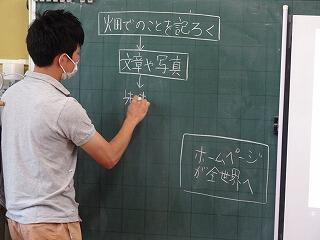 畑でのことを記ろく
文章や写真
ホームページ
が全世界へ